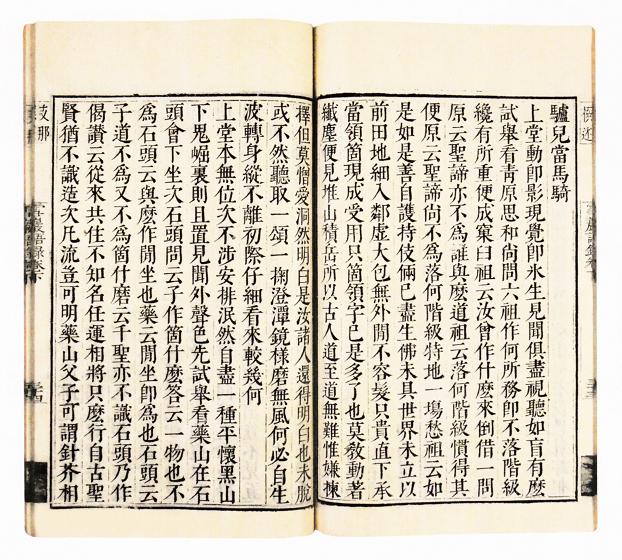 驢兒當馬騎
上堂動即影現覺即氷生見聞俱盡視聽如盲有麼
試舉看青原思和尚問六祖作何所務即不落階級
纔有所重便成窠臼祖云汝曾作什麼來倒借一問
原云聖諦亦不爲誰與麼道祖云落何階級慣得其
便原云聖諦尚不爲落何階級特地一塲愁祖云如
是如是善自護持伎倆已盡生佛未具世界未立以
前田地細入鄰虛大包無外間不容髮只貴直下承
當領箇現成受用只箇領字已是多了也莫教動著
纖塵便見堆山積岳所以古人道至道無難惟嫌揀
擇但莫憎愛洞然明白是汝諸人還得明白也未脫
或不然聽取一頌一掬澄潭鏡樣磨無風何必自生
波轉身縱不離初際仔細看來較幾何
上堂本無位次不涉安排泯然自盡一種平懷黑山
下鬼崛裏則且置見聞外聲色先試舉看藥山在石
頭會下坐次石頭問云子作箇什麽答云一物也不
爲石頭云與麽作閒坐也藥云閒坐即爲也石頭云
子道不爲又不爲箇什麽云千聖亦不識石頭乃作
偈讚云從來共住不知名任運相將只麽行自古聖
賢猶不識造次凡流豈可明藥山父子可謂針芥相